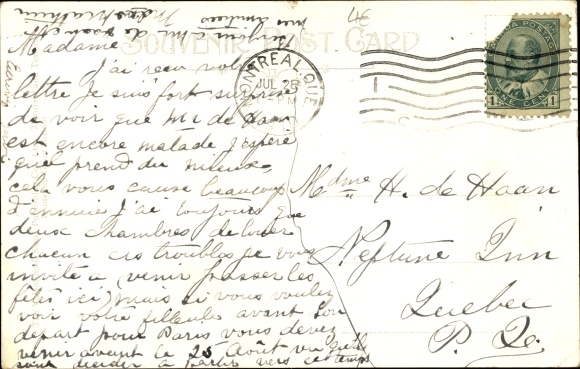 SOUVENIR POST CARD
Madame
J'ai reçu votre
lettre Je suis fort surprise
de voir que Mr de Haan
est encore malade J'espère
qu'il prend du mieux,
cela vous cause beaucoup
d'ennuie J'ai toujours que
deux chambres de louer
chacun ces troubles je vous
invite a (venir passer les
fêtes ici) mais si vous voulez
voir votre filleule avant son
départ pour Paris vous devez
venir avant le 25 Août vu qu'ils
sont décidér a partir vers ce temps
mes amitiées
MONTREAL, QUE.
JUL 28
PM
CANADA POSTAGE
1 ONE CENT 1
4€
Mdme H. de Haan
Neptune Inn
Quebec
P. Q.